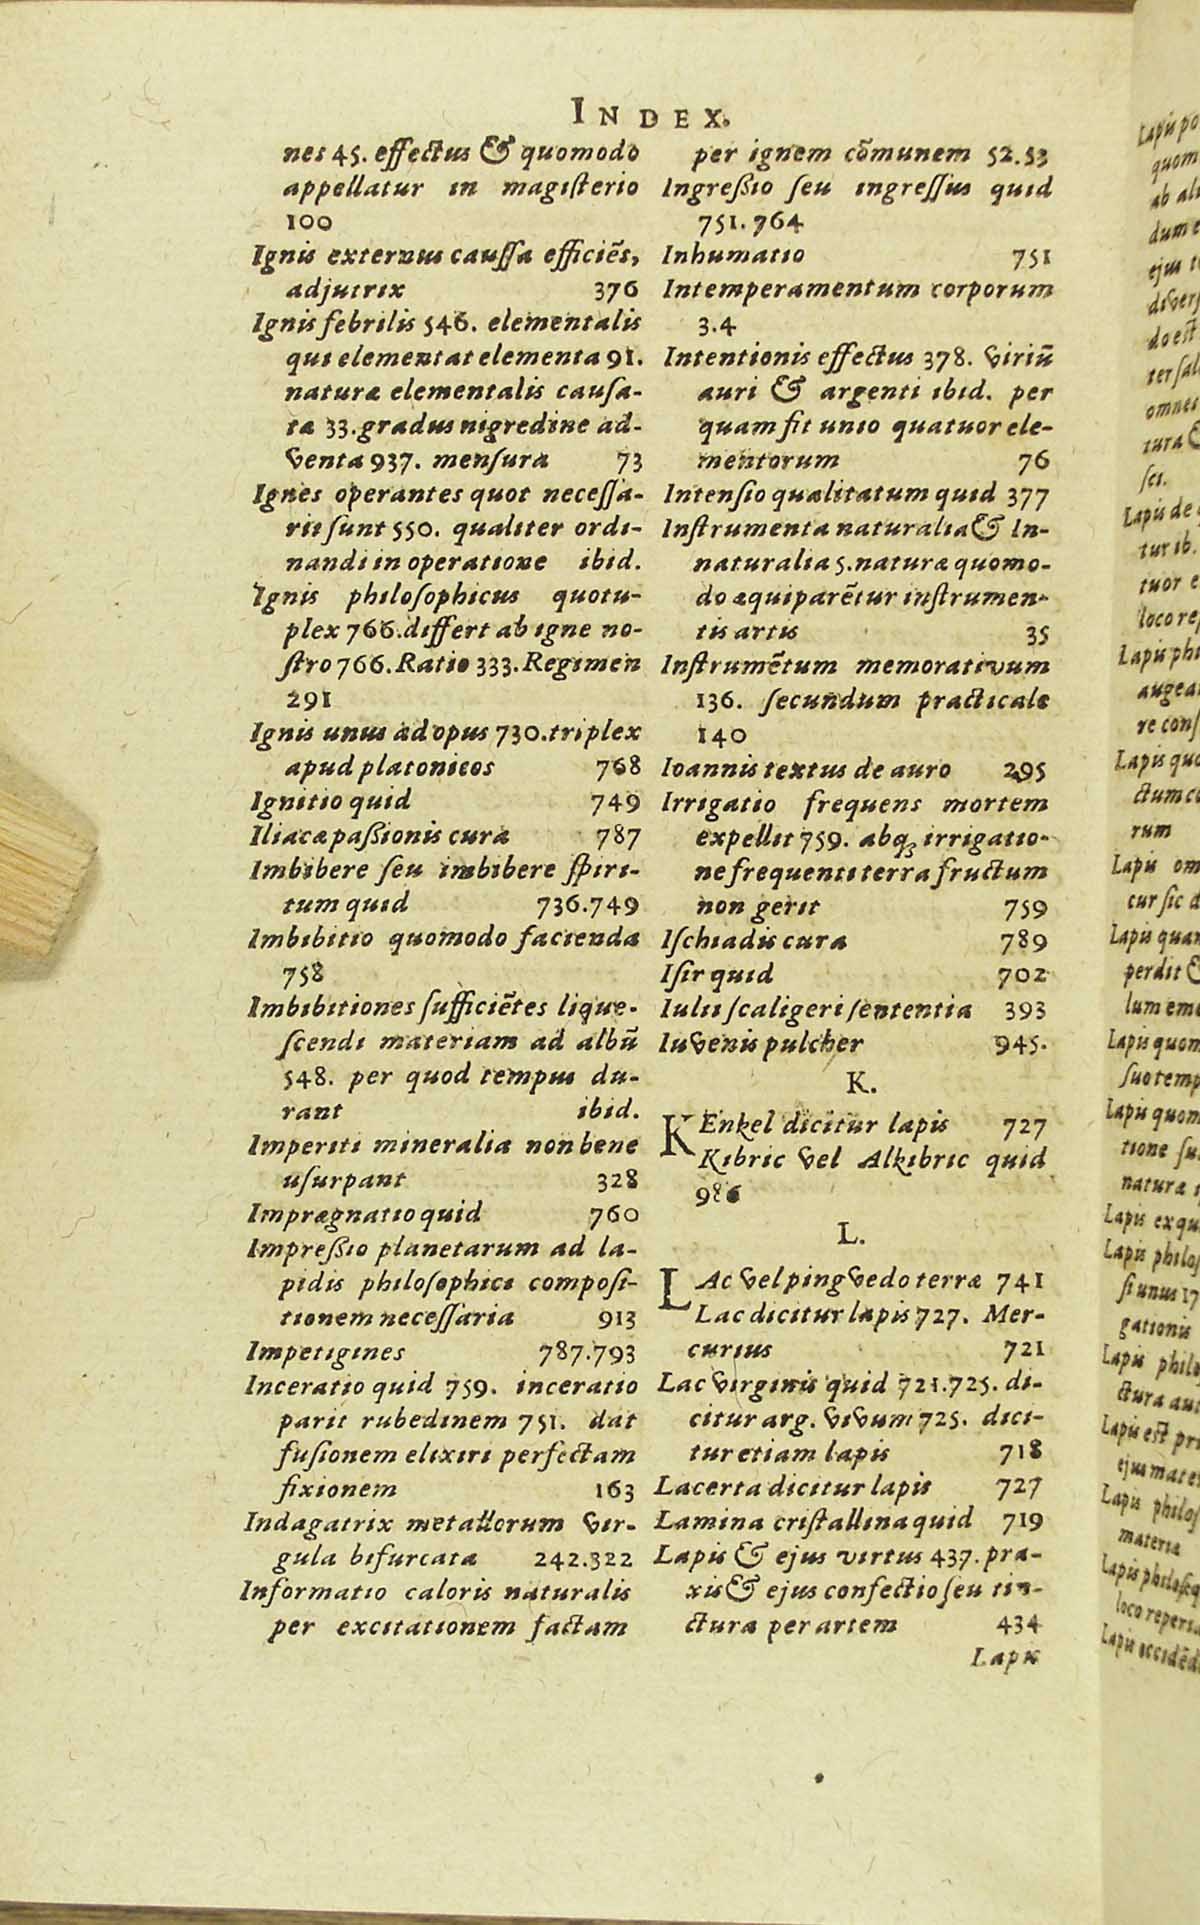 INDEX.
nes 45. effectus & quomodo
appellatur in magisterio
100
Ignis externus caussa efficiẽs,
adjutrix 376
Ignis febrilis 546. elementalis
qui elementat elementa 91.
naturæ elementalis causa-
ta 33. gradus nigredine ad-
venta 937. mensura 73
Ignes operantes quot necessa-
rii sunt 550. qualiter ordi-
nandi in operatione ibid.
Ignis philosophicus quotu-
plex 766. differt ab igne no-
stro 766. Ratio 333. Regimen
291
Ignis unus ad opus 730. triplex
apud platonicos 768
Ignitio quid 749
Iliacæ paßionis cura 787
Imbibere seu imbibere spiri-
tum quid 736.749
Imbibitio quomodo facienda
758
Imbibitiones sufficiẽtes lique-
scendi materiam ad albũ
548. per quod tempus du-
rant ibid.
Imperiti mineralia non bene
usurpant 328
Imprægnatio quid 760
Impreßio planetarum ad la-
pidis philosophici composi-
tionem necessaria 913
Impetigines 787.793
Inceratio quid 759. inceratio
parit rubedinem 751. dat
fusionem elixiri perfectam
fixionem 163
Indagatrix metallorum vir-
gula bifurcata 242.322
Informatio caloris naturalis
per excitationem factam
per ignem cõmunem 52.53
Ingreßio seu ingressus quid
751.764
Inhumatio 751
Intemperamentum corporum
3.4
Intentionis effectus 378. viriũ
auri & argenti ibid. per
quam fit unio quatuor ele-
mentorum 76
Intensio qualitatum quid 377
Instrumenta naturalia & In-
naturalia 5. naturæ quomo-
do æquiparẽtur instrumen-
tis artis 35
Instrumẽtum memorativum
136. secundum practicale
140
Ioannis textus de auro 295
Irrigatio frequens mortem
expellit 759. abq; irrigatio-
ne frequenti terra fructum
non gerit 759
Ischiadis cura 789
Isir quid 702
Iulii scaligeri sententia 393
Iuvenis pulcher 945.
K.
KEnkel dicitur lapis 727
Kibric vel Alkibric quid
986
L.
LAc vel pingvedo terræ 741
Lac dicitur lapis 727. Mer-
curius 721
Lac virginis quid 721.725. di-
citur arg. vivum 725. dici-
tur etiam lapis 718
Lacerta dicitur lapis 727
Lamina cristallina quid 719
Lapis & ejus virtus 437. pra-
xis & ejus confectio seu tin-
ctura per artem 434
Lapis
Lapis po
quom
ab ali
dum e
ejus
diver
do est
ter sal
omnes
tura &
sci.
Lapis de
tur ib.
tuor e
loco re
Lapis phi
augea
re cons
Lapis quo
ctum co
rum
Lapis om
cur sic d
Lapis quan
perdit &
lum eme
Lapis quom
suo temp
Lapis quom
tione su
naturæ
Lapis exqu
Lapis philos
si unus 17
gationis
Lapis philo
ctura aut
Lapis est pri
ejus mater
Lapis philos
materia
Lapis philosoq
loco reperia
Lapis occidẽd